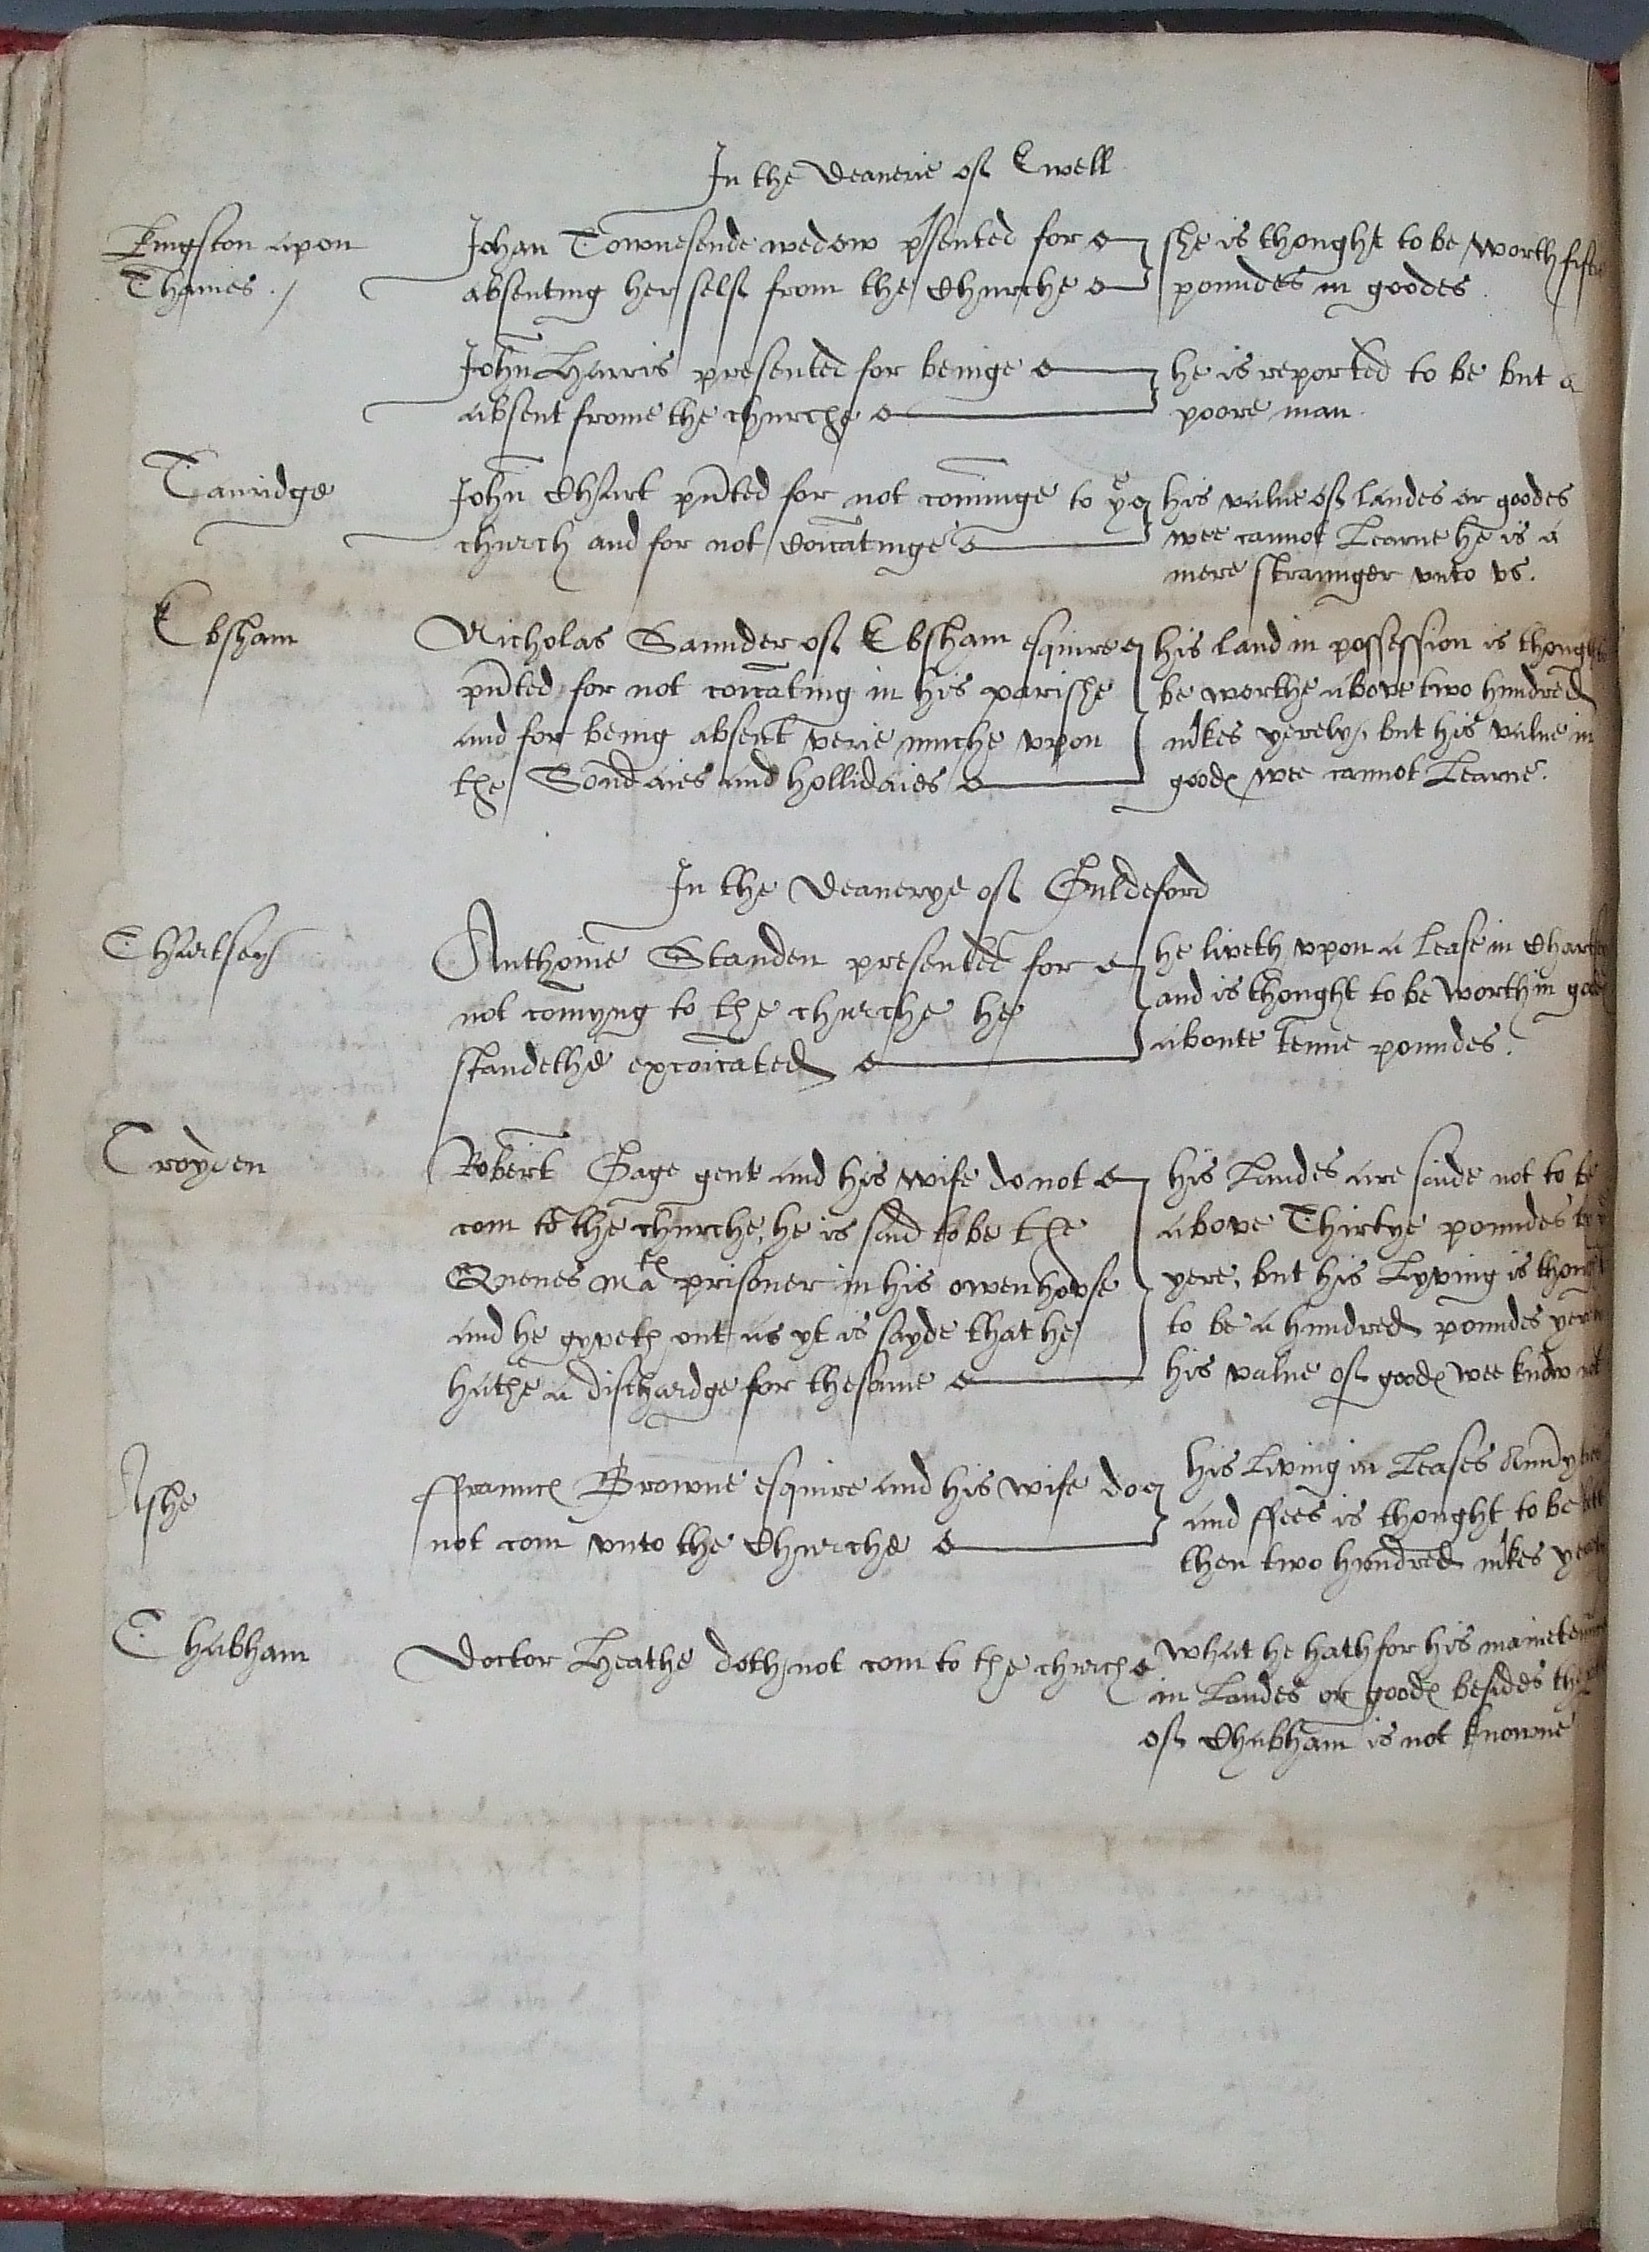 In the Deanerie of Ewell
Kingston upon
Thames ./
Johan Townesende wedow psented for
absenting her self from the Churche
she is thought to be worth fiftie
poundes in goodes.
John Harris presented for beinge
absent frome the churche
he is reported to be but a
poore man.
Tanridge
John Chart pnted for not cominge to ye
church and for not Coicatinge
his value of landes or goodes
wee cannot Learne he is a
mere straunger unto us.
Ebsham
Nicholas Saunder of Ebsham esquire
pnted for not coicating in his parishe
and for being absent verie muche upon
the Sondaies and hollidaies
his land in possession is thought
be worthe above two hundred
mkes yerely, but his value in
goodes wee cannot Learne.
In the Deanerye of Guldeford
Chartsey
Anthonie Standen presented for
not comyng to the churche he
standethe excoicated
he liveth upon a lease in
and is thought to be worth in
aboute tenne poundes.
Croyden
Robert Gage gent and his wife do not
com to the churche, he is said to be the
Quenes Matie prisoner in his owen howse
and he gyveth out as yt is sayde that he
hathe a dischardge for thesame
His Landes are saide not to be
above Thirtye poundes
yere, but his Lyving is
to be a hundred poundes
his value of goodes wee know not
Ashe
ffraunces Browne esquire and his wife do
not com unto the Churche
His Living in Leases
and ffees is thought to be
then two hundred mkes
Chabham
Doctor Heathe doth not com to the church
What he hath for his
in Landes or goodes besides
of Chabham is not knowne